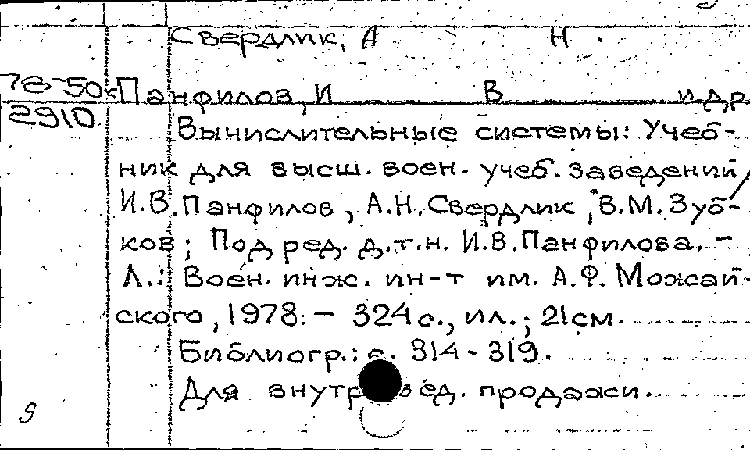 Свердлик, А Н.
78-50к Панфилов, И В и др
2910
Вычислительные системы: Учеб-
ник для высш. воен. учеб. заведений /
И.В. Панфилов, А.Н. Свердлик, В.М. Зуб-
ков; Под ред. д.т.н. И.В. Панфилова. –
Л.: Воен. инж. ин-т им. А.Ф. Можай-
ского, 1978. – 324 с., ил.; 21 см.
Библиогр.: с. 314-319.
Для внутривед. продажи.